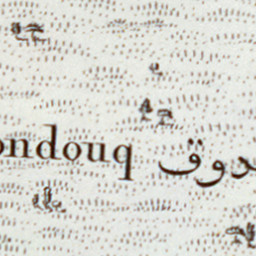 ondouq دوق